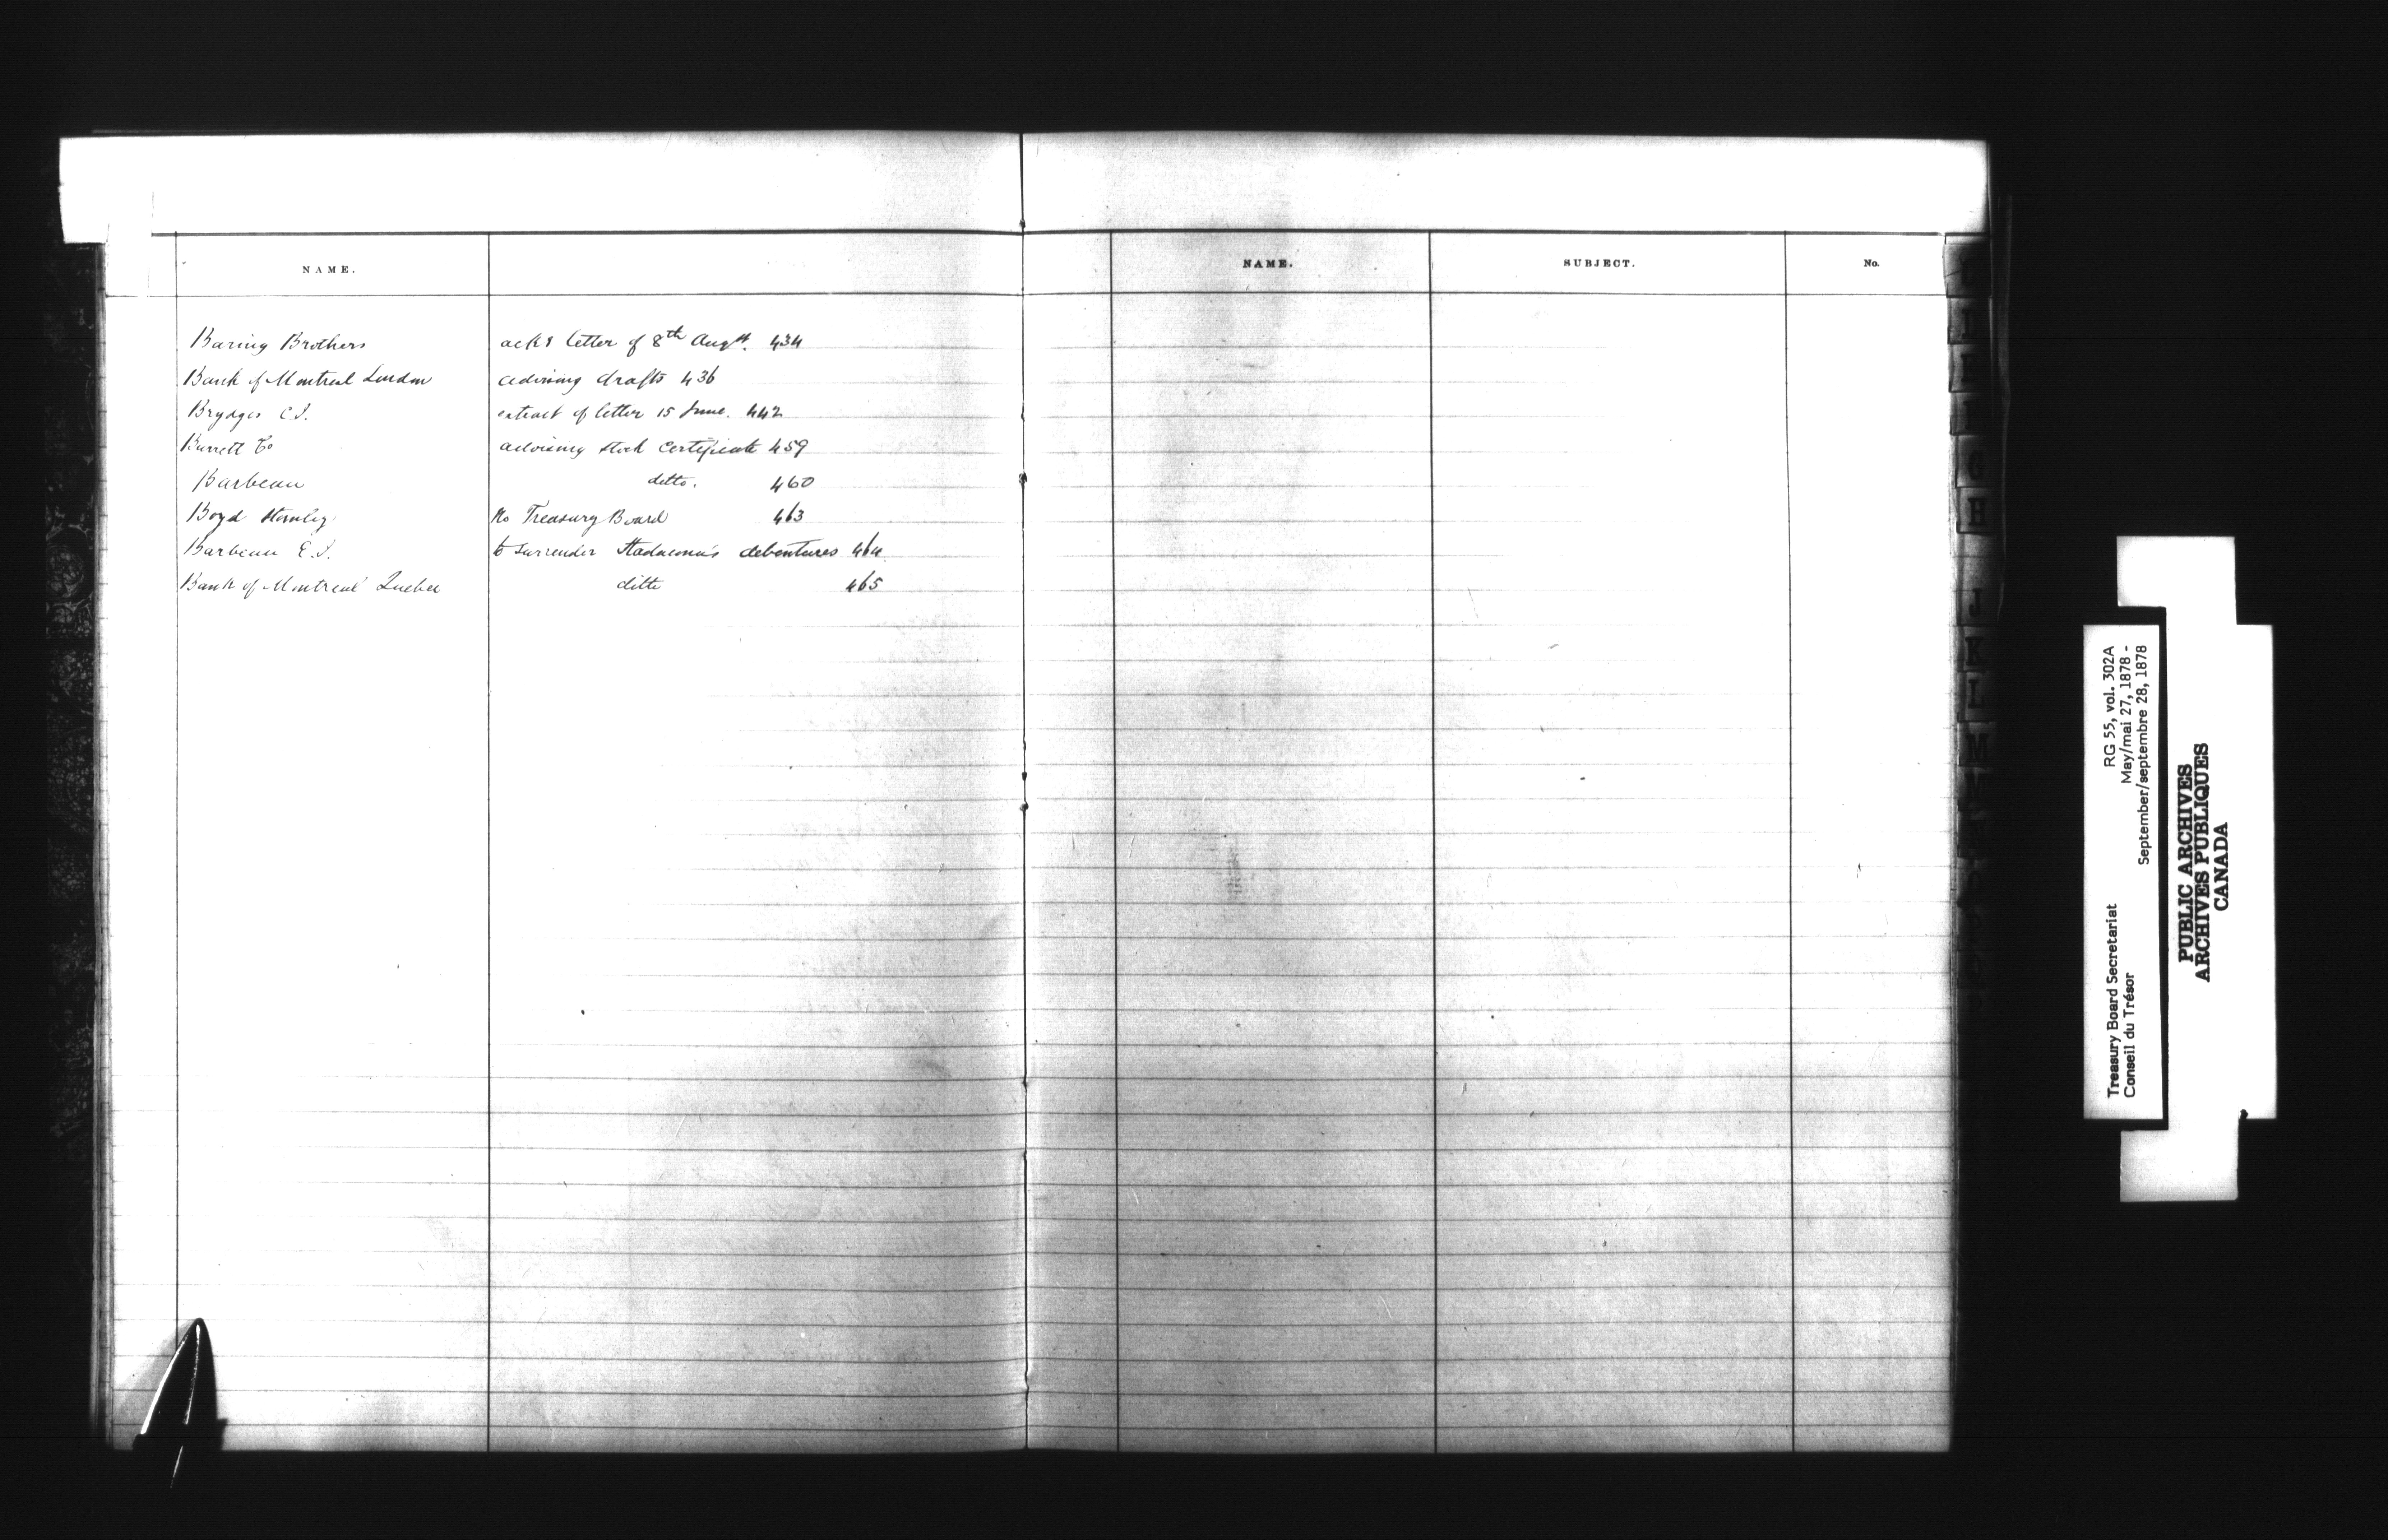 NAME.
Baring Brothers ackg letter of 8th Augt. 434
Bank of Montreal London advising drafts 436
Brydges C.J. extract of letter 15 June. 442
Burrett Co advising stock certificate 459
Barbeau ditto. 460
Boyd Stanley No Treasury Board 463
Barbeau E.J. to surrender Stadacona's debentures 464
Bank of Montreal Quebec ditto 465
NAME. SUBJECT. No.
G
H
J
K
L
M
Treasury Board Secretariat RG 55, vol. 302A
Conseil du Trésor May/mai 27, 1878 -
September/septembre 28, 1878
PUBLIC ARCHIVES
ARCHIVES PUBLIQUES
CANADA